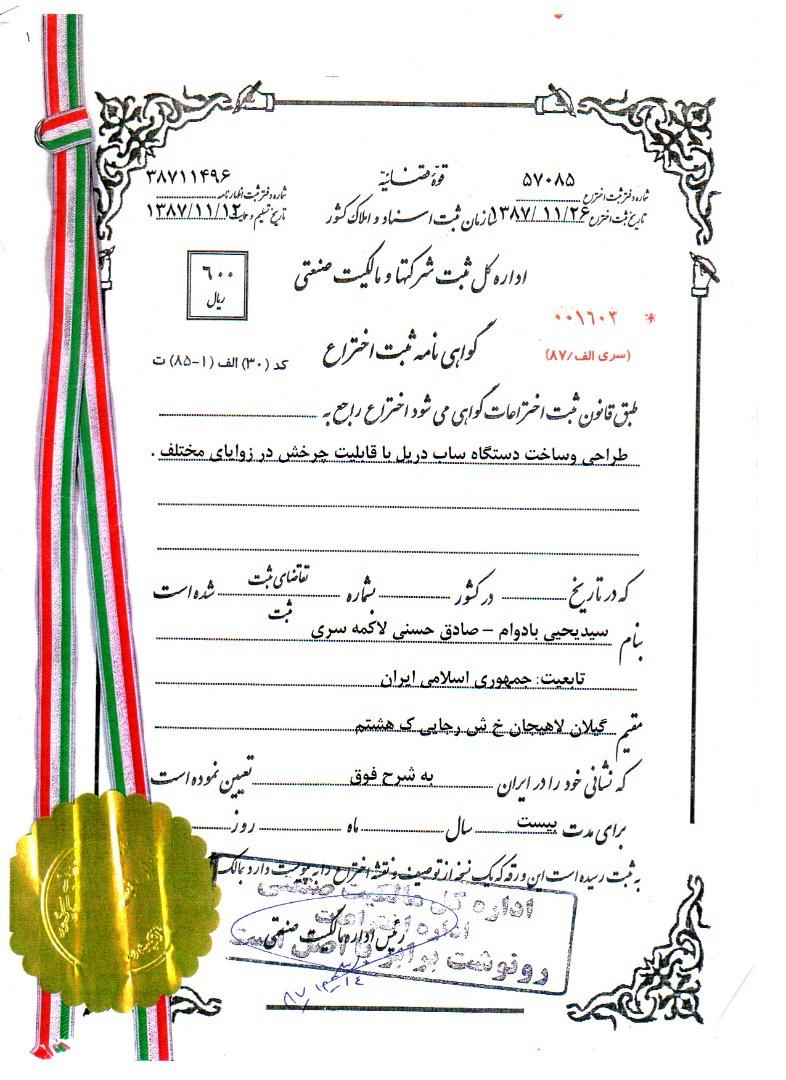 ۱
قوّه قضائیّه
شماره دفتر ثبت اختراع ۵۷۰۸۵
تاریخ ثبت اختراع ۱۳۸۷/۱۱/۲۶
سازمان ثبت اسناد و املاک کشور
۳۸۷۱۱۴۹۶
شماره دفتر ثبت اظهارنامه
تاریخ تسلیم و حمایت ۱۳۸۷/۱۱/۱۲
اداره کل ثبت شرکتها و مالکیت صنعتی
۶۰۰
ریال
* ۰۰۱۶۰۲
(سری الف/۸۷)
گواهی نامه ثبت اختراع
کد (۳۰) الف (۱-۸۵) ت
طبق قانون ثبت اختراعات گواهی می شود اختراع راجع به
طراحی وساخت دستگاه ساب دریل با قابلیت چرخش در زوایای مختلف .
که در تاریخ در کشور بشماره تقاضای ثبت شده است
ثبت
بنام سیدیحیی بادوام – صادق حسنی لاکمه سری
تابعیت: جمهوری اسلامی ایران
مقیم گیلان لاهیجان خ ش رجایی ک هشتم
که نشانی خود را در ایران به شرح فوق تعیین نموده است
برای مدت بیست سال ماه روز
به ثبت رسیده است این ورقه که یک نسخه از توصیف و نقشه اختراع را به پیوست دارد بمالک
اداره کل مالکیت صنعتی
اداره اختراعات
رئیس اداره مالکیت صنعتی
رونوشت برابر با اصل است